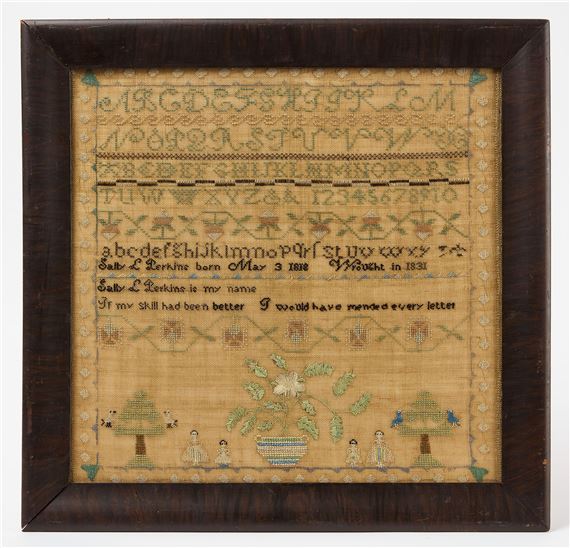 ABCDEFGHIJKLM
NOPQRSTUVW
ABCDEFGHIJKLMNOPQRS
TUW XYZ& 12345678910
abcdefghijklmnopqrſstuvwxyz
Sally L Perkins born May 3 1818 Wrought in 1831
Sally L Perkins is my name
If my skill had been better I would have mended every letter